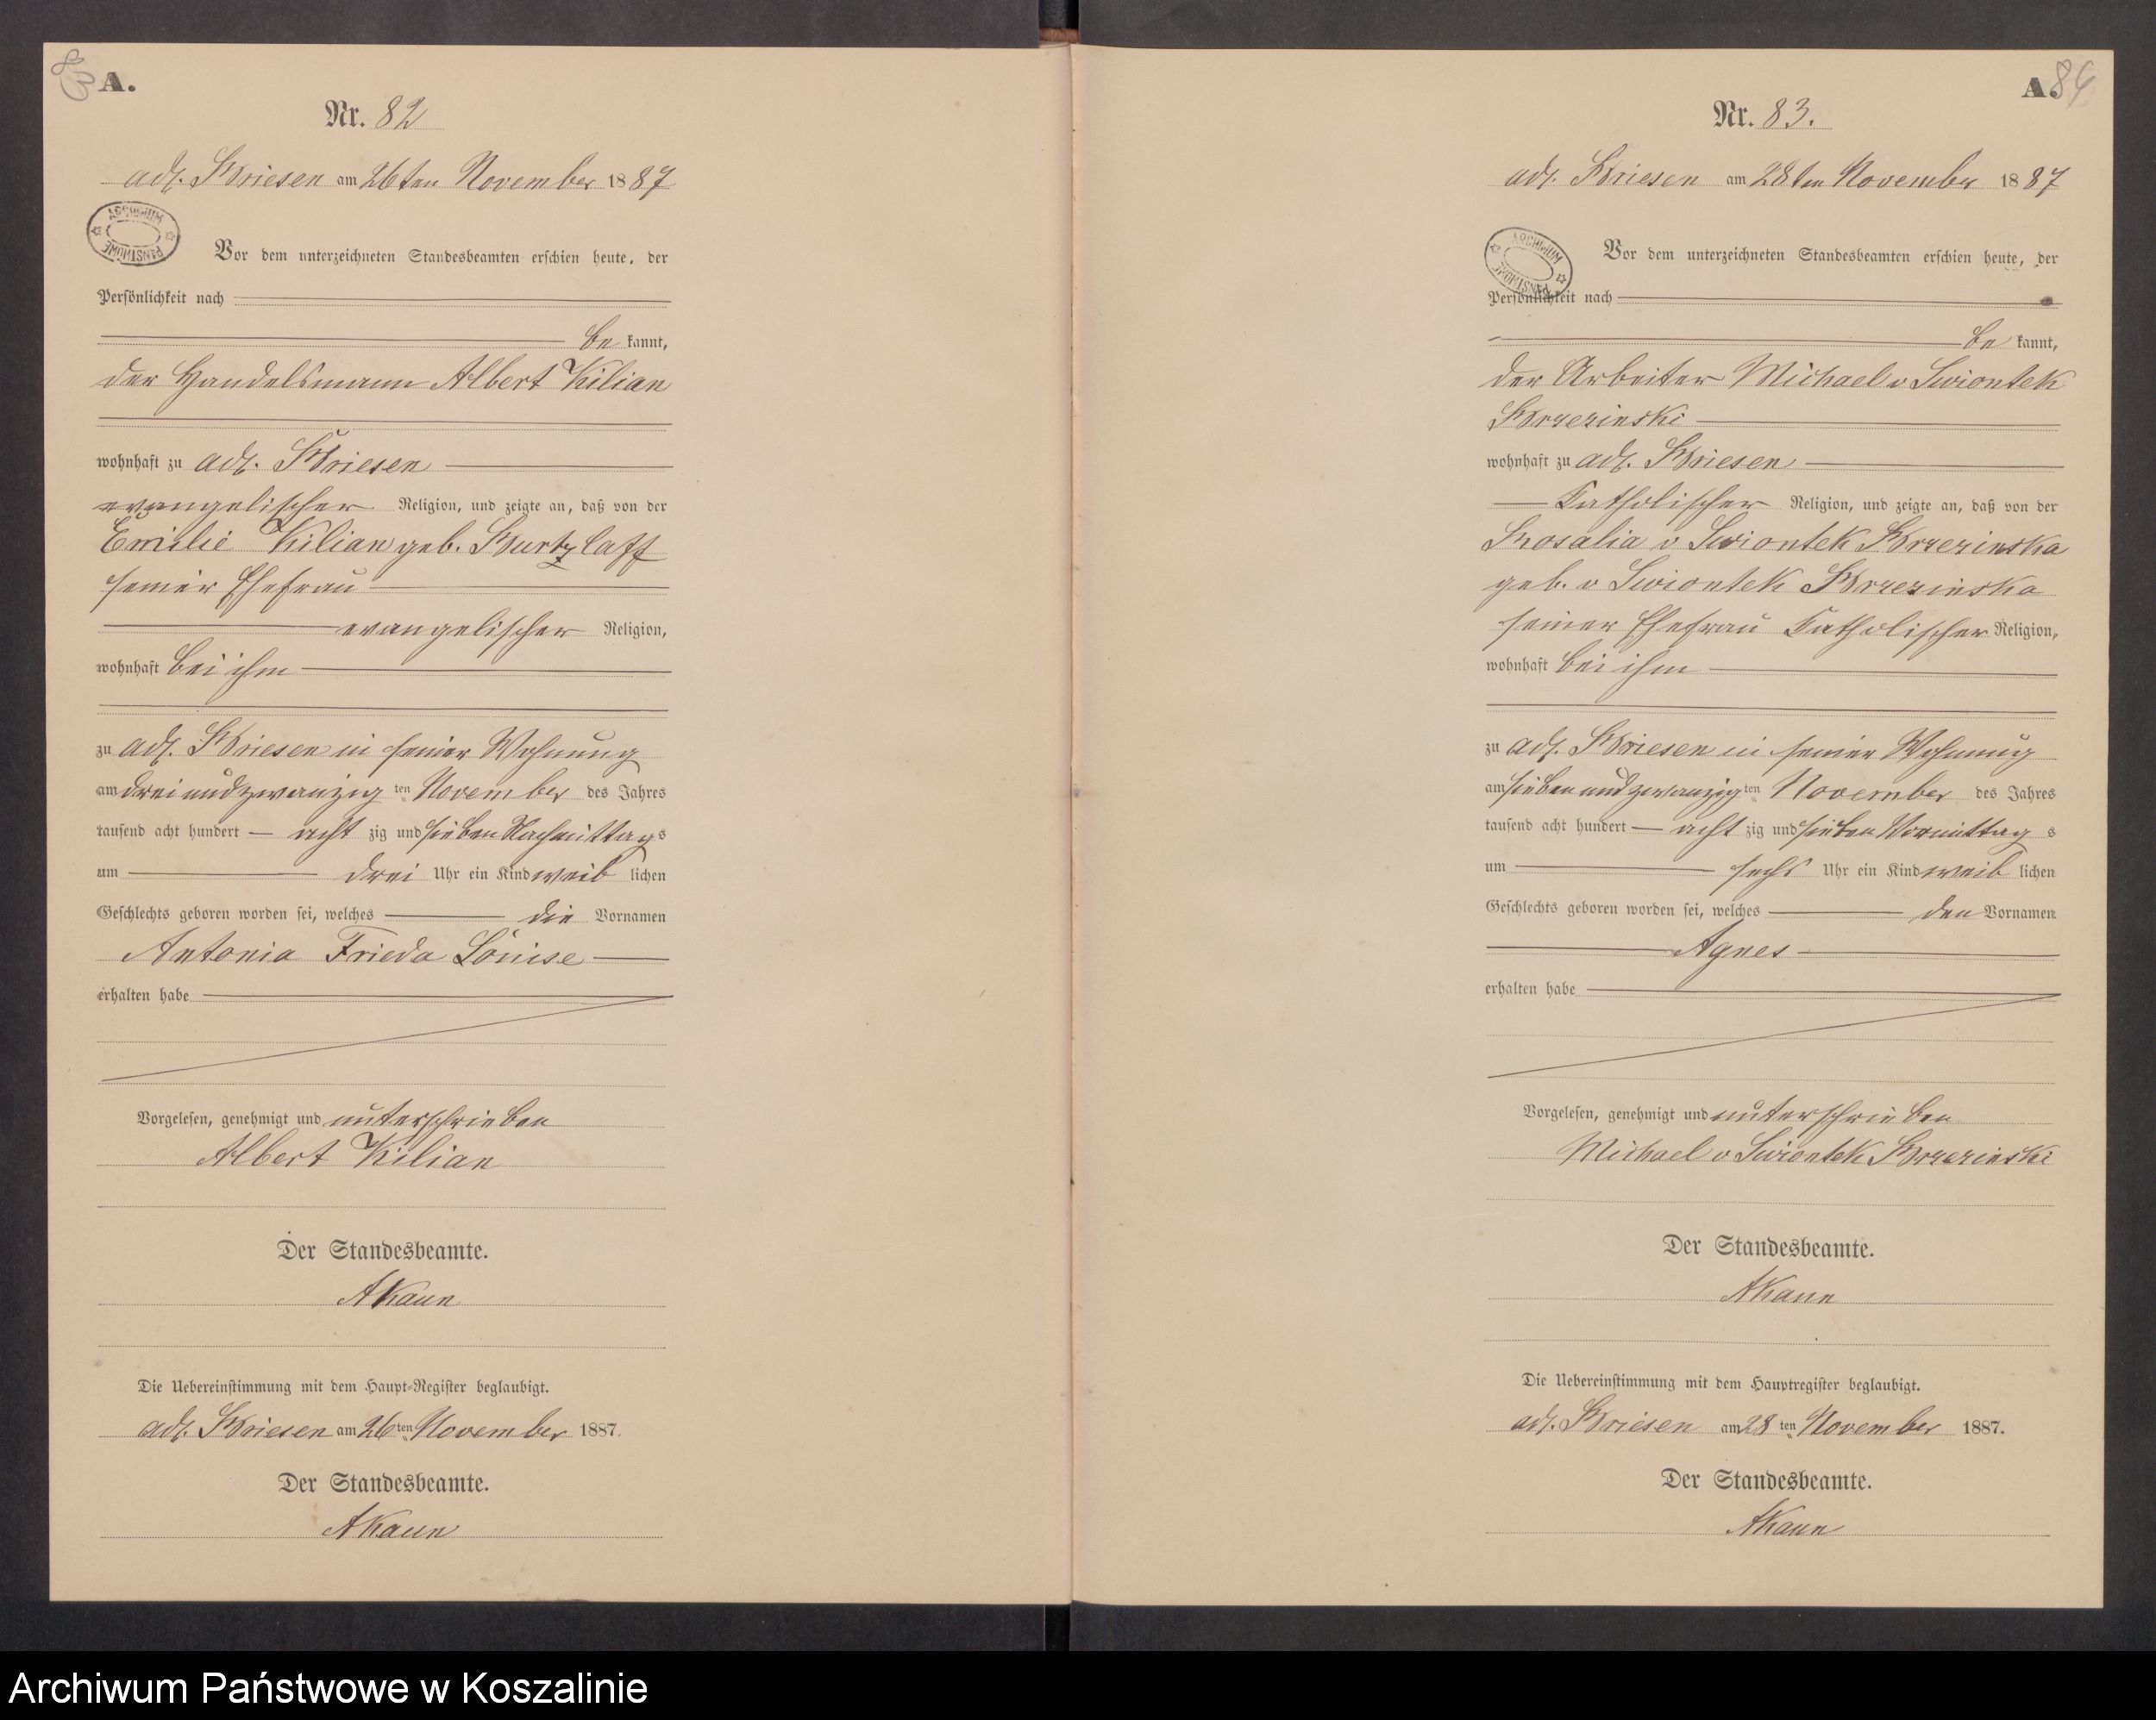 83
A.
Nr. 82
adl. Briesen am 26ten November 1887
ARCHIWUM PAŃSTWOWE
Vor dem unterzeichneten Standesbeamten erschien heute, der
Persönlichkeit nach
be kannt,
der Handelsmann Albert Kilian
wohnhaft zu adl. Briesen
evangelischer Religion, und zeigte an, daß von der
Emilie Kilian geb. Burtzlaff
seiner Ehefrau
evangelischer Religion,
wohnhaft bei ihm
zu adl. Briesen in seiner Wohnung
am drei und zwanzig ten November des Jahres
tausend acht hundert acht zig und sieben Nachmittags
um drei Uhr ein Kind weib lichen
Geschlechts geboren worden sei, welches die Vornamen
Antonia Frieda Louise
erhalten habe
Vorgelesen, genehmigt und unterschrieben
Albert Kilian
Der Standesbeamte.
AKaun
Die Uebereinstimmung mit dem Haupt-Register beglaubigt.
adl. Briesen am 26ten November 1887.
Der Standesbeamte.
AKaun
A.
84
Nr. 83.
adl. Briesen am 28ten November 1887
ARCHIWUM PAŃSTWOWE
Vor dem unterzeichneten Standesbeamten erschien heute, der
Persönlichkeit nach
be kannt,
der Arbeiter Michael v Swiontek
Brzezinski
wohnhaft zu adl. Briesen
katholischer Religion, und zeigte an, daß von der
Rosalia v Swiontek Brzezinska
geb. v Swiontek Brzezinska
seiner Ehefrau katholischer Religion,
wohnhaft bei ihm
zu adl. Briesen in seiner Wohnung
am sieben und zwanzig ten November des Jahres
tausend acht hundert acht zig und sieben Vormittag s
um sechs Uhr ein Kind weib lichen
Geschlechts geboren worden sei, welches den Vornamen
Agnes
erhalten habe
Vorgelesen, genehmigt und unterschrieben
Michael v Swiontek Brzezinski
Der Standesbeamte.
AKaun
Die Uebereinstimmung mit dem Hauptregister beglaubigt.
adl. Briesen am 28 ten November 1887.
Der Standesbeamte.
AKaun
Archiwum Państwowe w Koszalinie